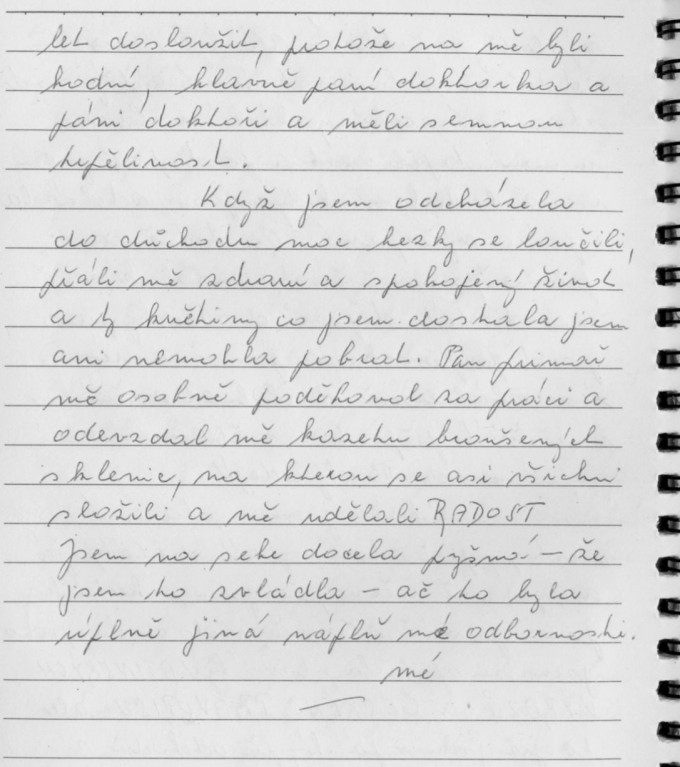 let dosloužit, protože na mě byli
hodní, hlavně paní doktorka a
páni doktoři a měli semnou
trpělivost.
Když jsem odcházela
do důchodu moc hezky se loučili,
přáli mě zdraví a spokojený život
a ty květiny co jsem dostala jsem
ani nemohla pobrat. Pan primař
mě osobně poděkoval za práci a
odevzdal mě kazetu broušených
sklenic, na kterou se asi všichni
složili a mě udělali RADOST
Jsem na sebe docela pyšná – že
jsem to zvládla – ač to byla
úplně jiná náplň mé odbornosti.
mé